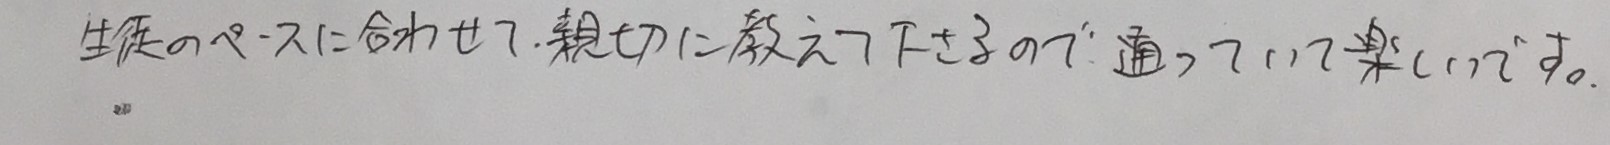 生徒のペースに合わせて、親切に教えて下さるので通っていて楽しいです。